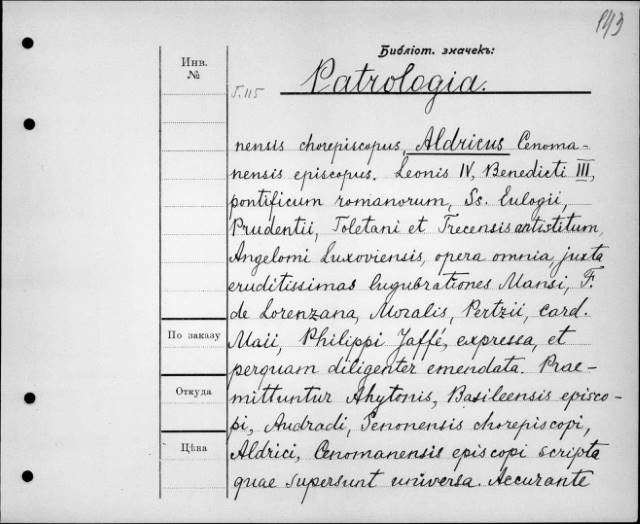 193
Библіот. значекъ:
Инв.
№
Т. 115
Patrologia.
nensis chorepiscopus, Aldricus Cenoma-
nensis episcopus. Leonis IV, Benedicti III,
pontificum romanorum, Ss. Eulogii,
Prudentii, Toletani et Trecensis antistitum,
Angelomi Luxoviensis, opera omnia, juxta
eruditissimas lugubrationes Mansi, F.
de Lorenzana, Moralis, Pertzii, card.
Maii, Philippi Jaffé, expressa, et
perquam diligenter emendata. Prae-
mittuntur Ahytonis, Basileensis episco-
pi, Audradi, Senonensis chorepiscopi,
Aldrici, Cenomanensis episcopi scripta
quae supersunt universa. Accurante
По заказу
Откуда
Цѣна